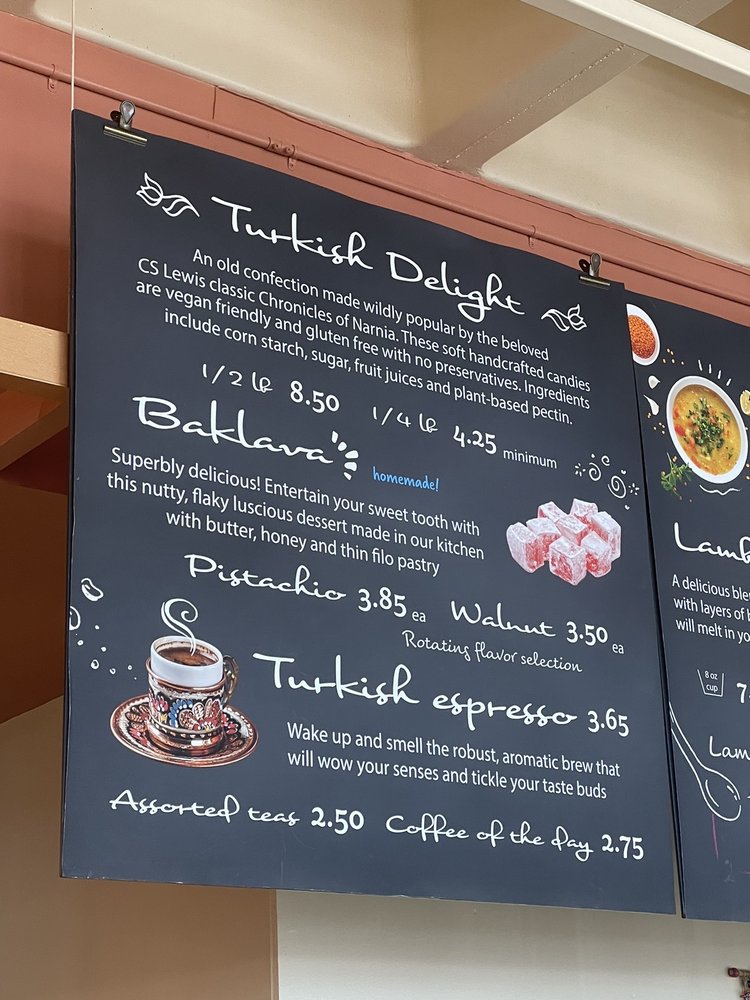 Turkish Delight
An old confection made wildly popular by the beloved
CS Lewis classic Chronicles of Narnia. These soft handcrafted candies
are vegan friendly and gluten free with no preservatives. Ingredients
include corn starch, sugar, fruit juices and plant-based pectin.
1/2 lb 8.50 1/4 lb 4.25 minimum
Baklava homemade!
Superbly delicious! Entertain your sweet tooth with
this nutty, flaky luscious dessert made in our kitchen
with butter, honey and thin filo pastry
Pistachio 3.85 ea Walnut 3.50 ea
Rotating flavor selection
Turkish espresso 3.65
Wake up and smell the robust, aromatic brew that
will wow your senses and tickle your taste buds
Assorted teas 2.50 Coffee of the day 2.75
Lamb
A delicious
with layers of
will melt in
8 oz
cup